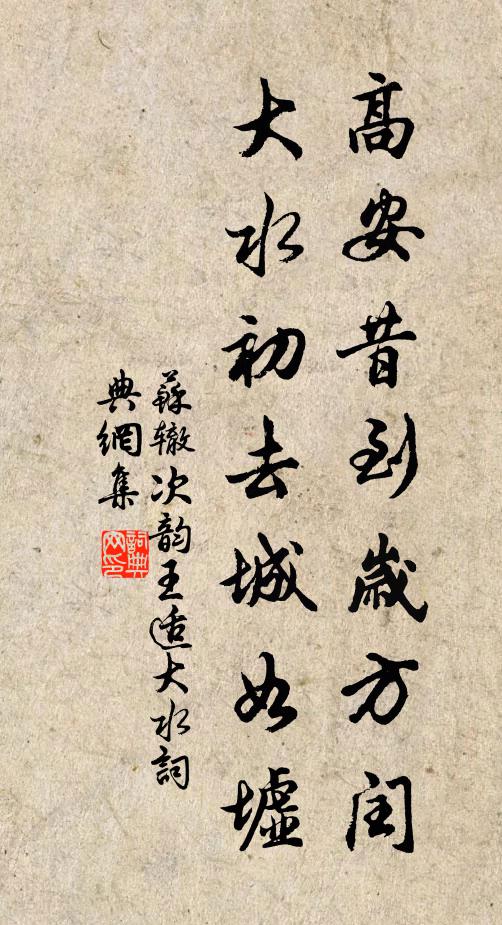 高安昔到歲方閏
大水初去城如墟
蘇轍次韵王适大水詞
典網集
詞典網印